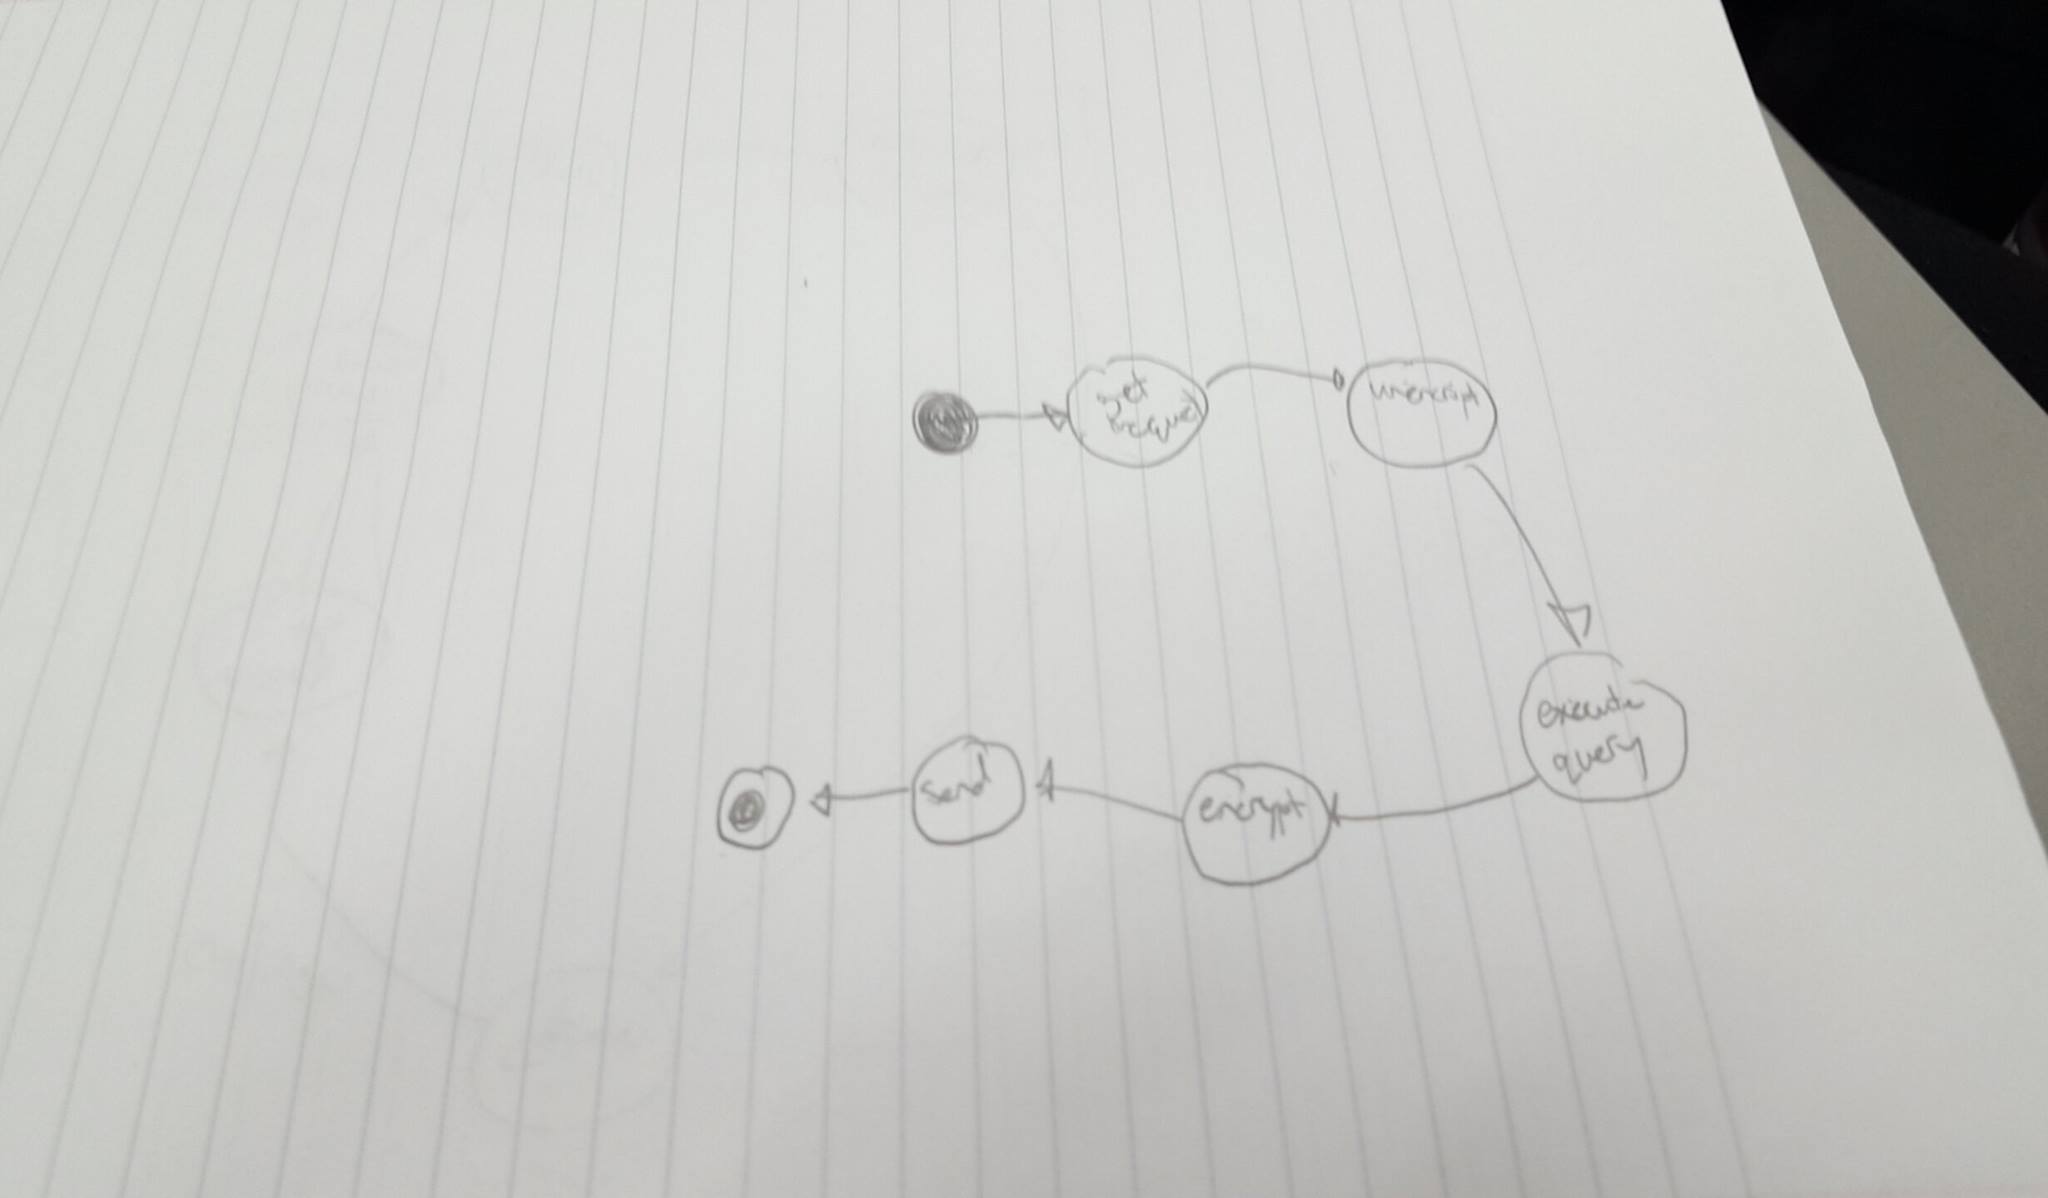 get
unencript
execute
query
encrypt
send